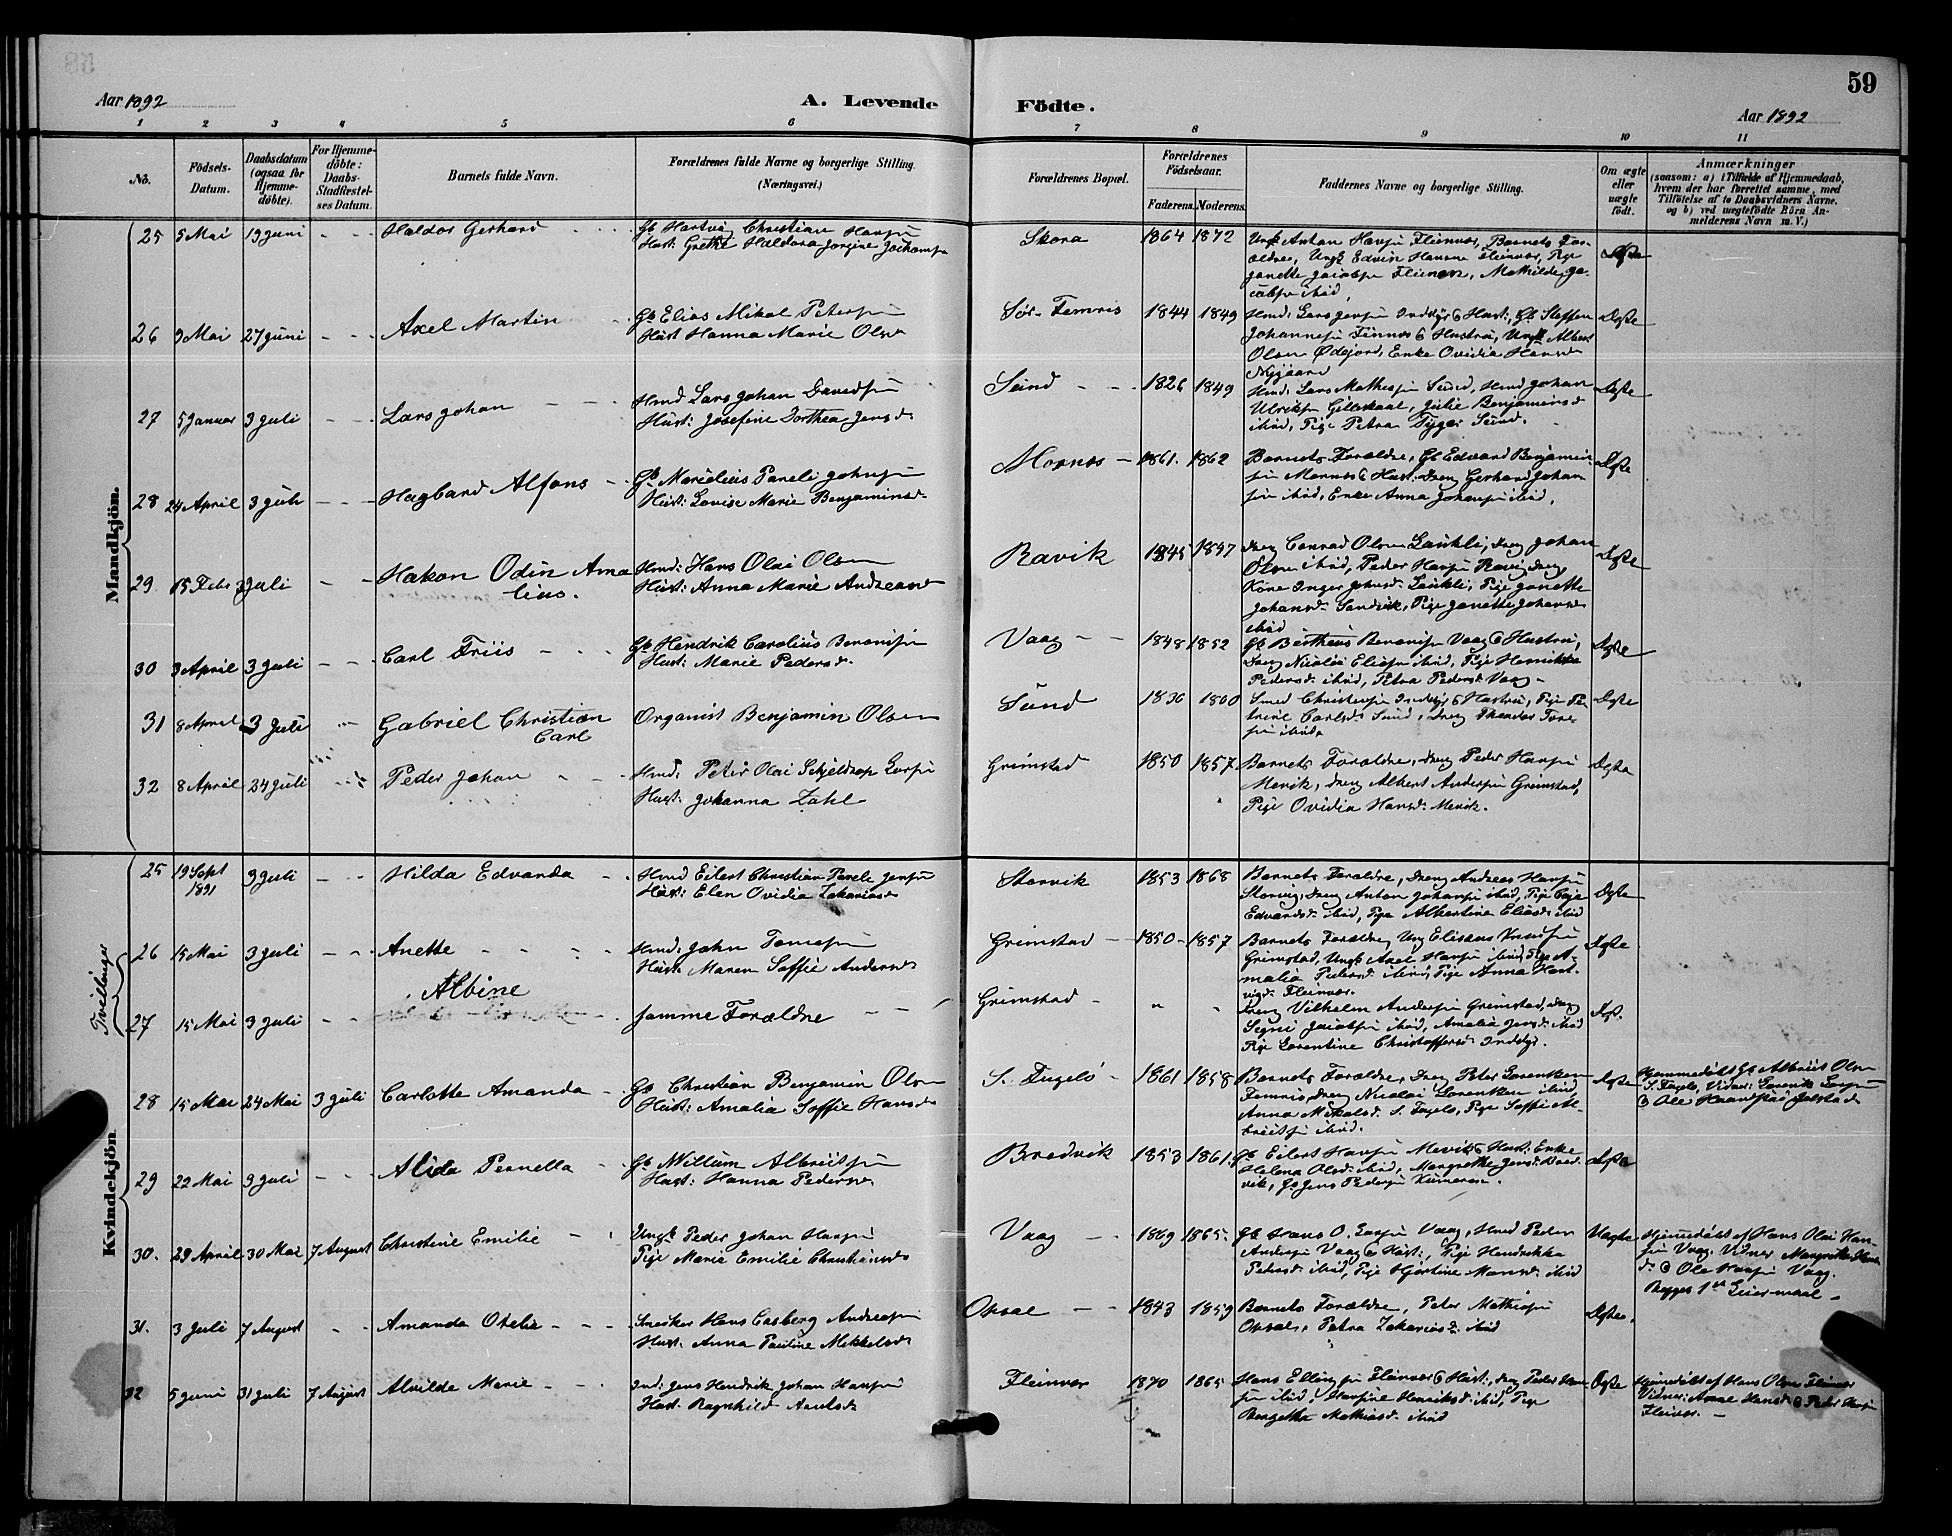 59
Aar 1892
A. Levende Födte.
Aar 1892
1 2 3 4 5 6 7 8 9 10 11
No.
Födsels-Datum.
Daabsdatum (ogsaa for Hjemme-döbte).
For Hjemme-döbte: Daabs-Stadfæstel-ses Datum.
Barnets fulde Navn.
Forældrenes fulde Navne og borgerlige Stilling.
(Næringsvei.)
Forældrenes Bopæl.
Forældrenes Födselsaar.
Faderens. Moderens.
Faddernes Navne og borgerlige Stilling.
Om ægte eller uægte födt.
Anmærkninger
(saasom: a) i Tilfælde af Hjemmedaab,
hvem der har forrettet samme, med
Tilföielse af to Daabsvidners Navne,
og b) ved uægtefödte Börn An-
melderens Navn m. V.)
Mandkjön.
25 5 Mai 19 Juni Haldor Gerhard
Gb Hartvig Christian Hansen
Hust: Grethe Haldora Jorgine Jochams
Skora 1864 1872
Ungk Anton Hansen Fleinvær, Barnets For-
ældre, Ungk Edvin Fleinvær, Pige
Janette Jacobsen Fleinvær, Mathilde Ja-
cobsen ibid,
Ægte
26 9 Mai 27 Juni Axel Martin
Gb Elias Mikal Petersen
Hust Hanna Marie Olsd
Sör-Femris 1844 1849
Hmd: Lars Jensen Inddyr & Hust:, Gb Steffen
Johannesen Finnes & Hustru, Ungk Albert
Olsen Ödejord, Enke Ovidia Hansd
Nygaard
Ægte
27 5 Januar 3 Juli Lars Johan
Hmd Lars Johan Davidsen
Hust: Josefine Dorthea Jensd
Sund 1826 1849
Hmd: Lars Mathisen Sund, Hmd Johan
Ulriksen Gilleskaal, Julie Benjaminsd
ibid, Pige Petra Sund.
Ægte
28 24 April 3 Juli Hagbard Alfons
Gb Marelius Pareli Johnsen
Hust: Lovise Marie Benjaminsd
Mornes 1861. 1862
Barnets Forældre, Gb Edvard Benjamin-
sen Mornes & Hust: Dreng Gerhard Johan
sen ibid, Enke Anna Johansen ibid,
Ægte
29 15 Febr 3 Juli Hakon Odin Ama
lius.
Hmd: Hans Olai Olsen
Hust: Anna Marie Andreasd
Ravik 1845 1857
Dreng Conrad Olsen Laukli, Dreng Johan
Olsen ibid, Peder Hansen
Kone Inger Johnsd: Laukli, Pige Janette
Johansd Sandvik, Pige Janette Johansd
ibid
Ægte
30 3 April 3 Juli Carl Friis
Gb Hendrik Carolius Beronisen
Hust: Marie Pedersd.
Vaag 1848 1852
Gb Bertheus Beronisen Vaag & Hustru,
Dreng Nicolai Eliasen ibid, Pige Henrikke
Pedersd. ibid, Petra Pedersd: Vaag
Ægte
31 8 April 3 Juli Gabriel Christian
Carl
Organist Benjamin Olsen
Sund 1836 1860
Smed Christensen Inddyr & Hustru, Pige Pe-
trine Carlsd Sund, Dreng Theodor Tore-
sen ibid.
Ægte
32 8 April 24 Juli Peder Johan
Hmd: Peter Olai Schjeldrop Larsen
Hust: Johanna Zahl
Grimstad 1850 1857
Barnets Forældre, Dreng Peder Hansen
Mevik, Dreng Albert Andersen Grimstad,
Pige Ovidia Hansd: Mevik.
Ægte
Kvindekjön
25 19 Sept 1891 3 Juli Hilda Edvarda
Hmd Eilert Christian Pareli Jensen
Hust: Elen Ovidia Zakariasd
Storvik 1853 1868
Barnets Forældre, Dreng Andreas Hansen
Storvig, Dreng Anton Johansen ibid, Pige
Edvardsd. ibid, Pige Albertine Eliasd: ibid
Ægte
Tvillinger
26 15 Mai 3 Juli Anette
Hmd: John Tomesen
Hust: Maren Soffie Andersd
Grimstad 1850 1857
Barnets Forældre, Ung Eliseus
Grimstad, Ungk Axel Hansen ibid, Pige A-
malia Pedersd ibid, Pige Anna Hart-
vigd: Fleinvær.
Ægte
27 15 Mai 3 Juli Albine
samme Forældre
Grimstad " "
Dreng Vilhelm Andersen Grimstad, Dreng
Jacobsen ibid, Amalia Jensd: ibid
Pige Lorentine Christoffersd: Inddyr.
Ægt.
28 15 Mai 24 Mai 3 Juli Carlotte Amanda
Gb Christian Benjamin Olsen
Hust: Amalia Soffie Hansd
S. Fugelö 1861 1858
Barnets Forældre, Dreng Peter Lorentsen
Femris, Dreng Nicolai Lorentsen ibid
Anna Mikalsd S. Fugelö, Pige Soffie Al-
bretsen ibid.
Ægte
Hjemmedöbt Olsen
S. Fugelö, Vidner:
& Ole
29 22 Mai 3 Juli Alida Pernella
Gb Willum Albrictsen
Hust: Hanna Pedersd.
Bredvik 1853 1861.
Gb Eilert Hansen Mevik & Hust: Enke
Helena Olsd: ibid, Margrethe Jensd: Bred-
vik, Gb Jens Pedersen
Ægte
30. 29 April 30 Mai 7 August Christine Emilie
Ungk: Peder Johan Hansen
Pige Marie Emilie Christiansd
Vaag 1869 1865.
Gb Hans O. Larsen Vaag, Hmd Peder
Andersen Vaag & Hust:, Pige Hendrikka
Pedersd. ibid, Pige Hjertine Monsd: ibid
Uægte
Hjemmedöbt af Hans Olai Han-
sen Vaag. Vidner Margrethe
d: & Ole Hansen Vaag.
Begges 1ste Leiermaal
31. 3 Juli 7 August Amanda Otelie
Snedker Hans Casberg Andreasen
Hust: Anna Pauline Mikkelsd
Oksal 1843 1859
Barnets Forældre, Peter Mathisen
Oksal, Petra Zakariasd: ibid
Ægte.
32 5 Juni 31 Juli 7 August Alvilde Marie
Ind: Jens Hendrik Johan Hansen
Hust: Ragnhild
Fleinvær 1870 1865
Hans Ellingsen Fleinvær & Hust:, Dreng Peder Han
sen ibid, Hansine Henriksd: ibid, Pige
Bergette Mathiasd ibid
Ægte
Hjemmedöbt af Hans Olsen Fleinvær
Vidner: Hansd: & Peder Hansen
Fleinvær.